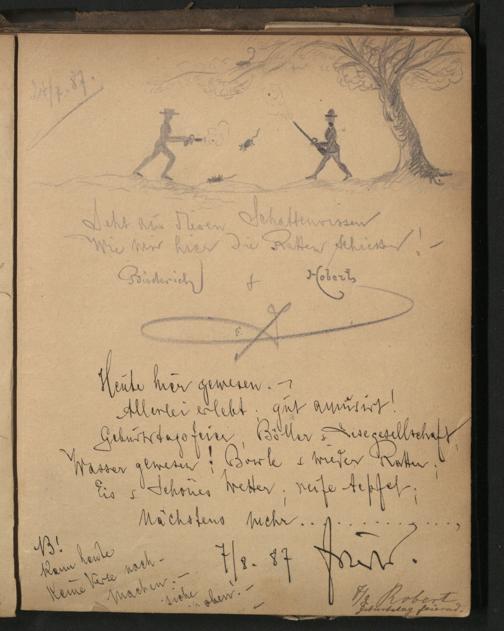 24/7. 87.
Seht aus diesen Schattenrissen
Wie wir hier die Ratten schiessen! –
& Robert
Heute hier gewesen. –
Allerlei erlebt. gut amüsirt!
Geburtstagsfeier, Böller & Lesegesellschaft,
Wasser gewesen! Bowle & wieder Ratten;
Eis & Schönes Wetter; reife Aepfel;
Nächstens mehr..........
NB!
Kann heute
keine Verse nach-
machen. –
siehe oben! –
7/8. 87
7/8 Robert
Geburtstag feiernd.